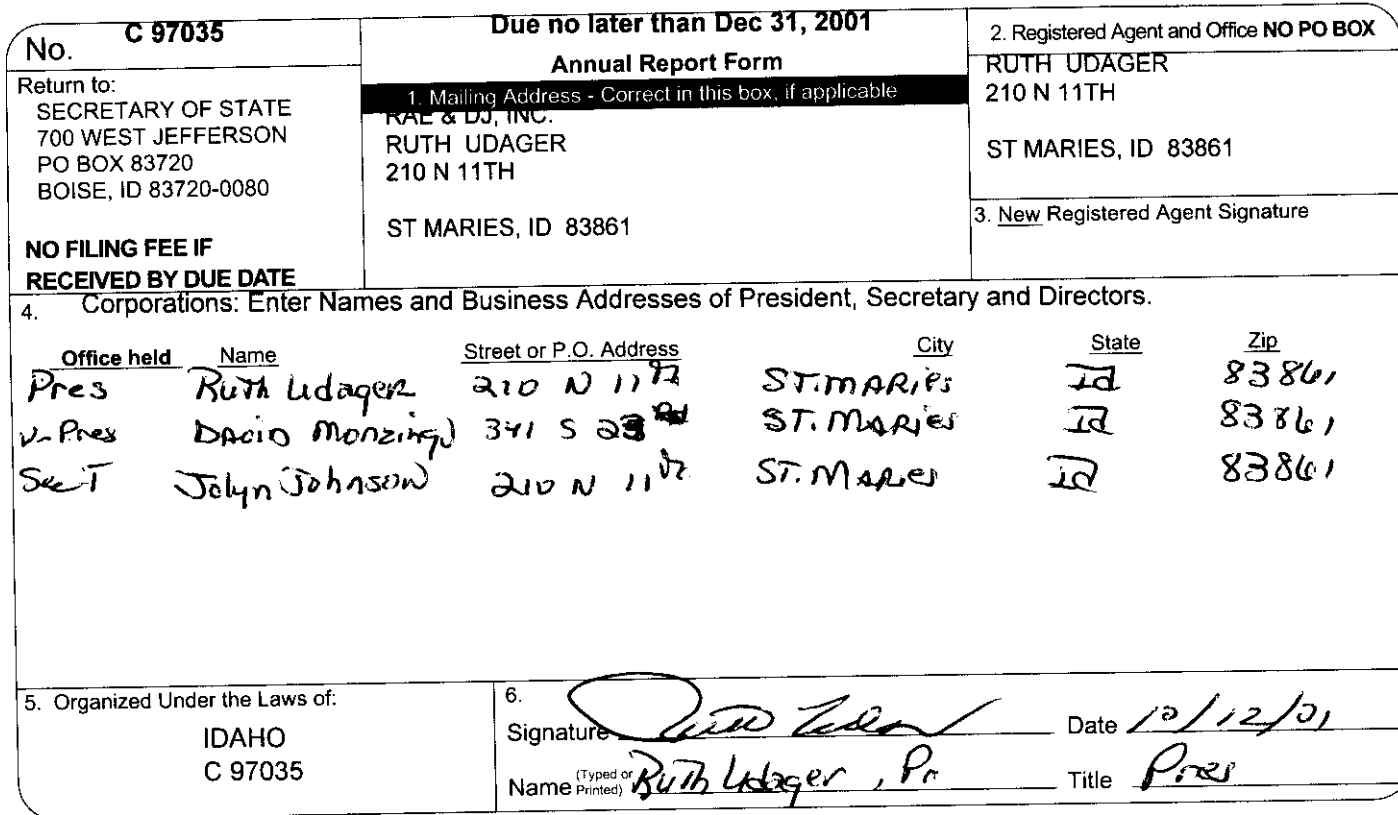 No. C 97035
Return to:
SECRETARY OF STATE
700 WEST JEFFERSON
PO BOX 83720
BOISE, ID 83720-0080
NO FILING FEE IF
RECEIVED BY DUE DATE
Due no later than Dec 31, 2001
Annual Report Form
1. Mailing Address - Correct in this box, if applicable
RAE & DJ, INC.
RUTH UDAGER
210 N 11TH
ST MARIES, ID 83861
2. Registered Agent and Office NO PO BOX
RUTH UDAGER
210 N 11TH
ST MARIES, ID 83861
3. New Registered Agent Signature
4. Corporations: Enter Names and Business Addresses of President, Secretary and Directors.
Office held Name Street or P.O. Address City State Zip
Pres Ruth Udager 210 N 11th ST. MARIES Id 83861
V-Pres David Monzingo 341 S 23rd ST. MARIES Id 83861
SecT Jolyn Johnson 210 N 11th ST. MARIES Id 83861
5. Organized Under the Laws of:
IDAHO
C 97035
6.
Signature Ruth Udager Date 10/12/01
Name (Typed or Printed) Ruth Udager, Pr Title Pres